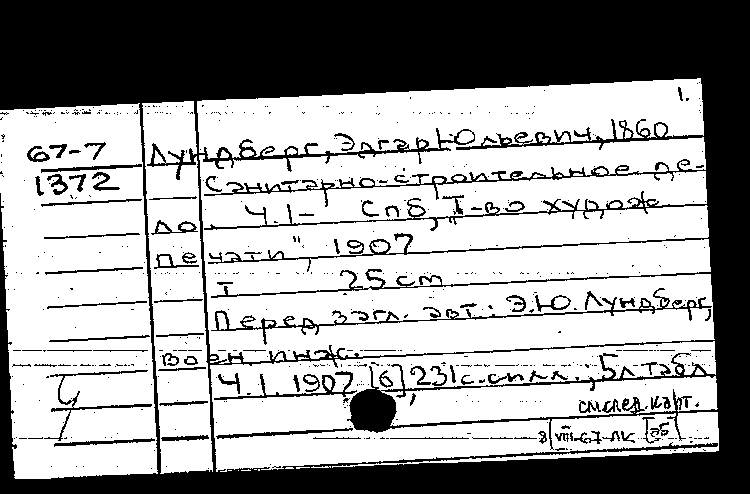 1.
67-7 Лундберг, Эдгар Юльевич, 1860
1372 Санитарно-строительное де-
ло. Ч.1- Спб, „Т-во худож
печати", 1907
т 25 cm
Перед загл. авт.: Э.Ю. Лундберг,
воен инж.
Ч.1. 1907 [6], 231 с. с илл.; 5 л табл
см. след. карт.
VIII-67 ЛК